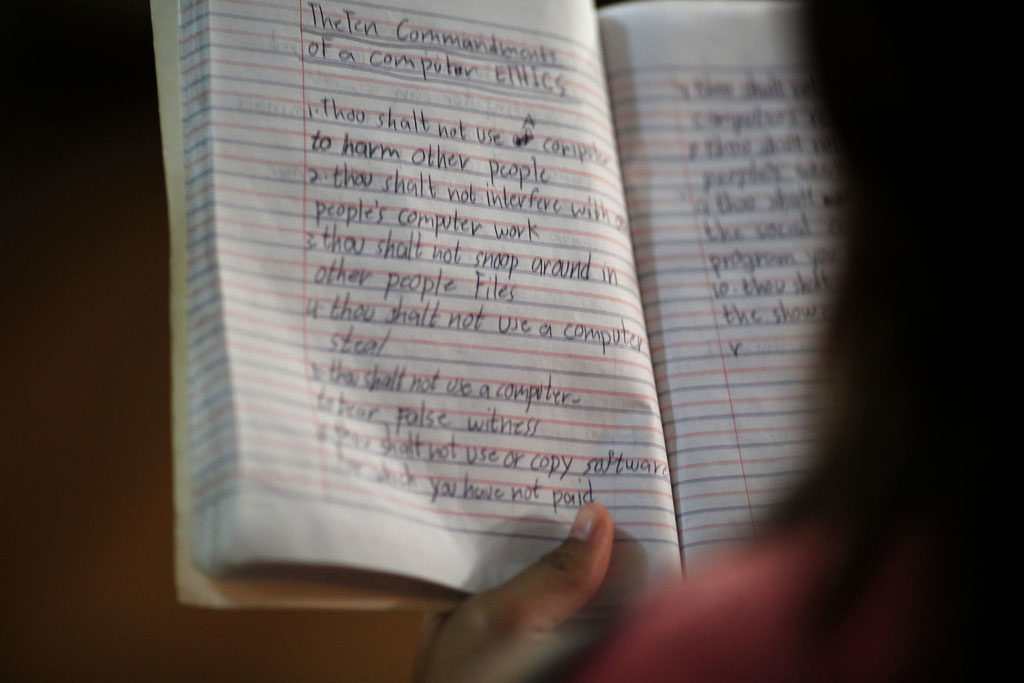 The Ten Commandments
of a computer Ethics
1. Thou shalt not use a compute
to harm other people
2. thou shalt not interfere with o
people's computer work
3. thou shalt not snoop around in
other people Files
4. thou shalt not use a computer
steal
5. thou shalt not use a computer
to bear False witness
6. thou shalt not use or copy saftware
for which you have not paid
thou shalt
computer
thou shalt
people's
thou shalt
the social
program you
10. thou shalt
the show